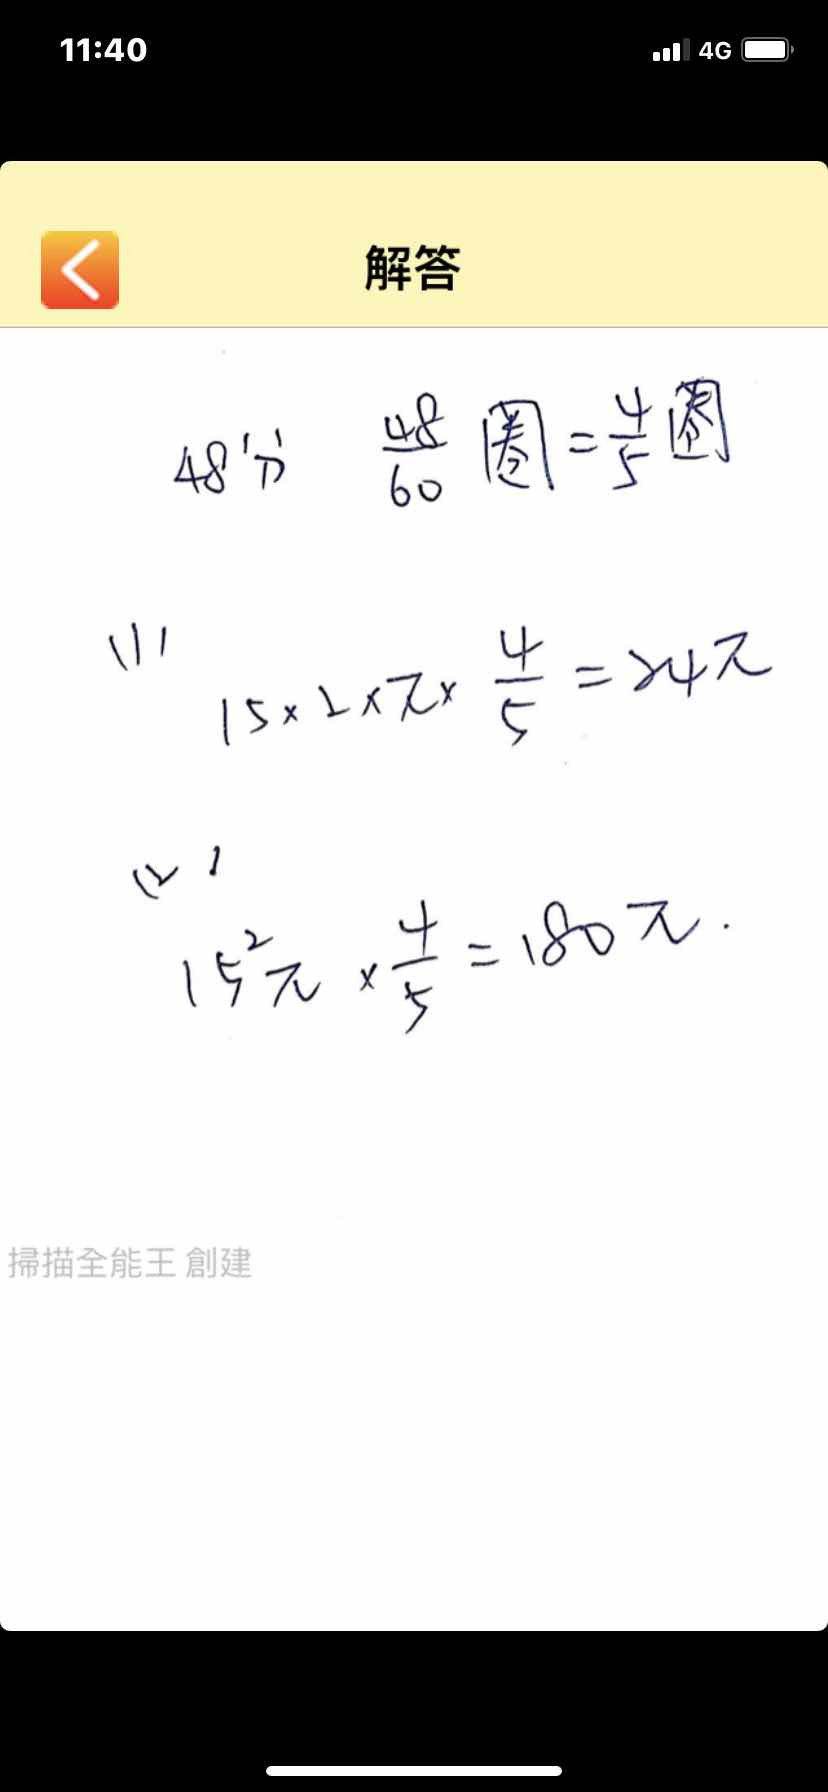 11:40 4G
解答
48分 48/60 圈 = 4/5 圈
(1)
15 × 2 × π × 4/5 = 24π
(2)
15²π × 4/5 = 180π.
掃描全能王 創建